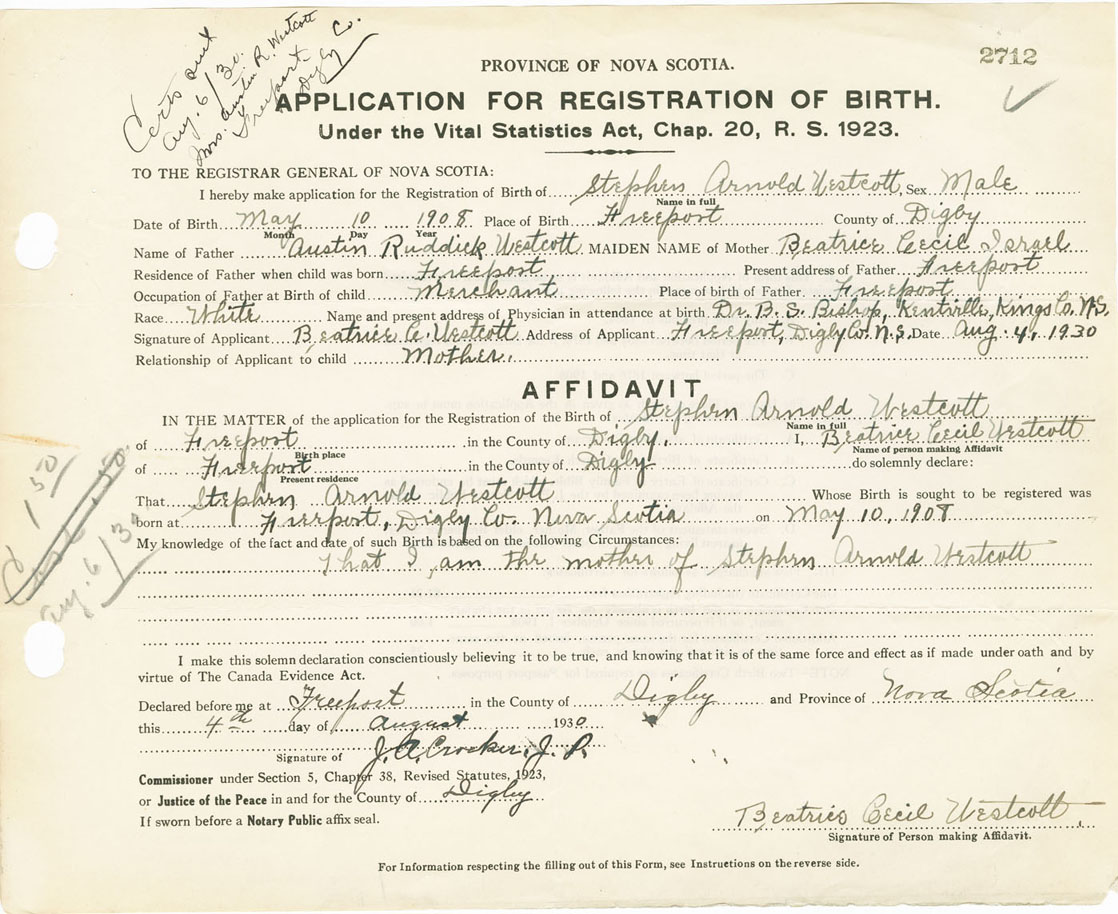 Certs sent
Aug. 6/30.
Mrs. Austin R. Westcott
Freeport
Digby Co.
2712
PROVINCE OF NOVA SCOTIA.
APPLICATION FOR REGISTRATION OF BIRTH.
Under the Vital Statistics Act, Chap. 20, R. S. 1923.
TO THE REGISTRAR GENERAL OF NOVA SCOTIA:
I hereby make application for the Registration of Birth of Stephen Arnold Westcott Sex Male
Name in full
Date of Birth May 10 1908 Place of Birth Freeport County of Digby
Month Day Year
Name of Father Austin Ruddick Westcott MAIDEN NAME of Mother Beatrice Cecil Israel
Residence of Father when child was born Freeport Present address of Father Freeport
Occupation of Father at Birth of child Merchant Place of birth of Father Freeport
Race White Name and present address of Physician in attendance at birth Dr. B. S. Bishop, Kentville, Kings Co. N.S.
Signature of Applicant Beatrice C. Westcott Address of Applicant Freeport, Digby Co. N.S. Date Aug. 4, 1930
Relationship of Applicant to child Mother.
AFFIDAVIT
IN THE MATTER of the application for the Registration of the Birth of Stephen Arnold Westcott
Name in full
of Freeport in the County of Digby. I, Beatrice Cecil Westcott
Birth place Name of person making Affidavit
of Freeport in the County of Digby do solemnly declare:
Present residence
That Stephen Arnold Westcott Whose Birth is sought to be registered was
born at Freeport, Digby Co. Nova Scotia on May 10, 1908
My knowledge of the fact and date of such Birth is based on the following Circumstances:
That I am the mother of Stephen Arnold Westcott
1 50
Aug. 6/30
I make this solemn declaration conscientiously believing it to be true, and knowing that it is of the same force and effect as if made under oath and by
virtue of The Canada Evidence Act.
Declared before me at Freeport in the County of Digby and Province of Nova Scotia
this 4th day of august 1930
Signature of J. A. Crocker, J. P.
Commissioner under Section 5, Chapter 38, Revised Statutes, 1923,
or Justice of the Peace in and for the County of Digby
If sworn before a Notary Public affix seal.
Beatrice Cecil Westcott.
Signature of Person making Affidavit.
For Information respecting the filling out of this Form, see Instructions on the reverse side.